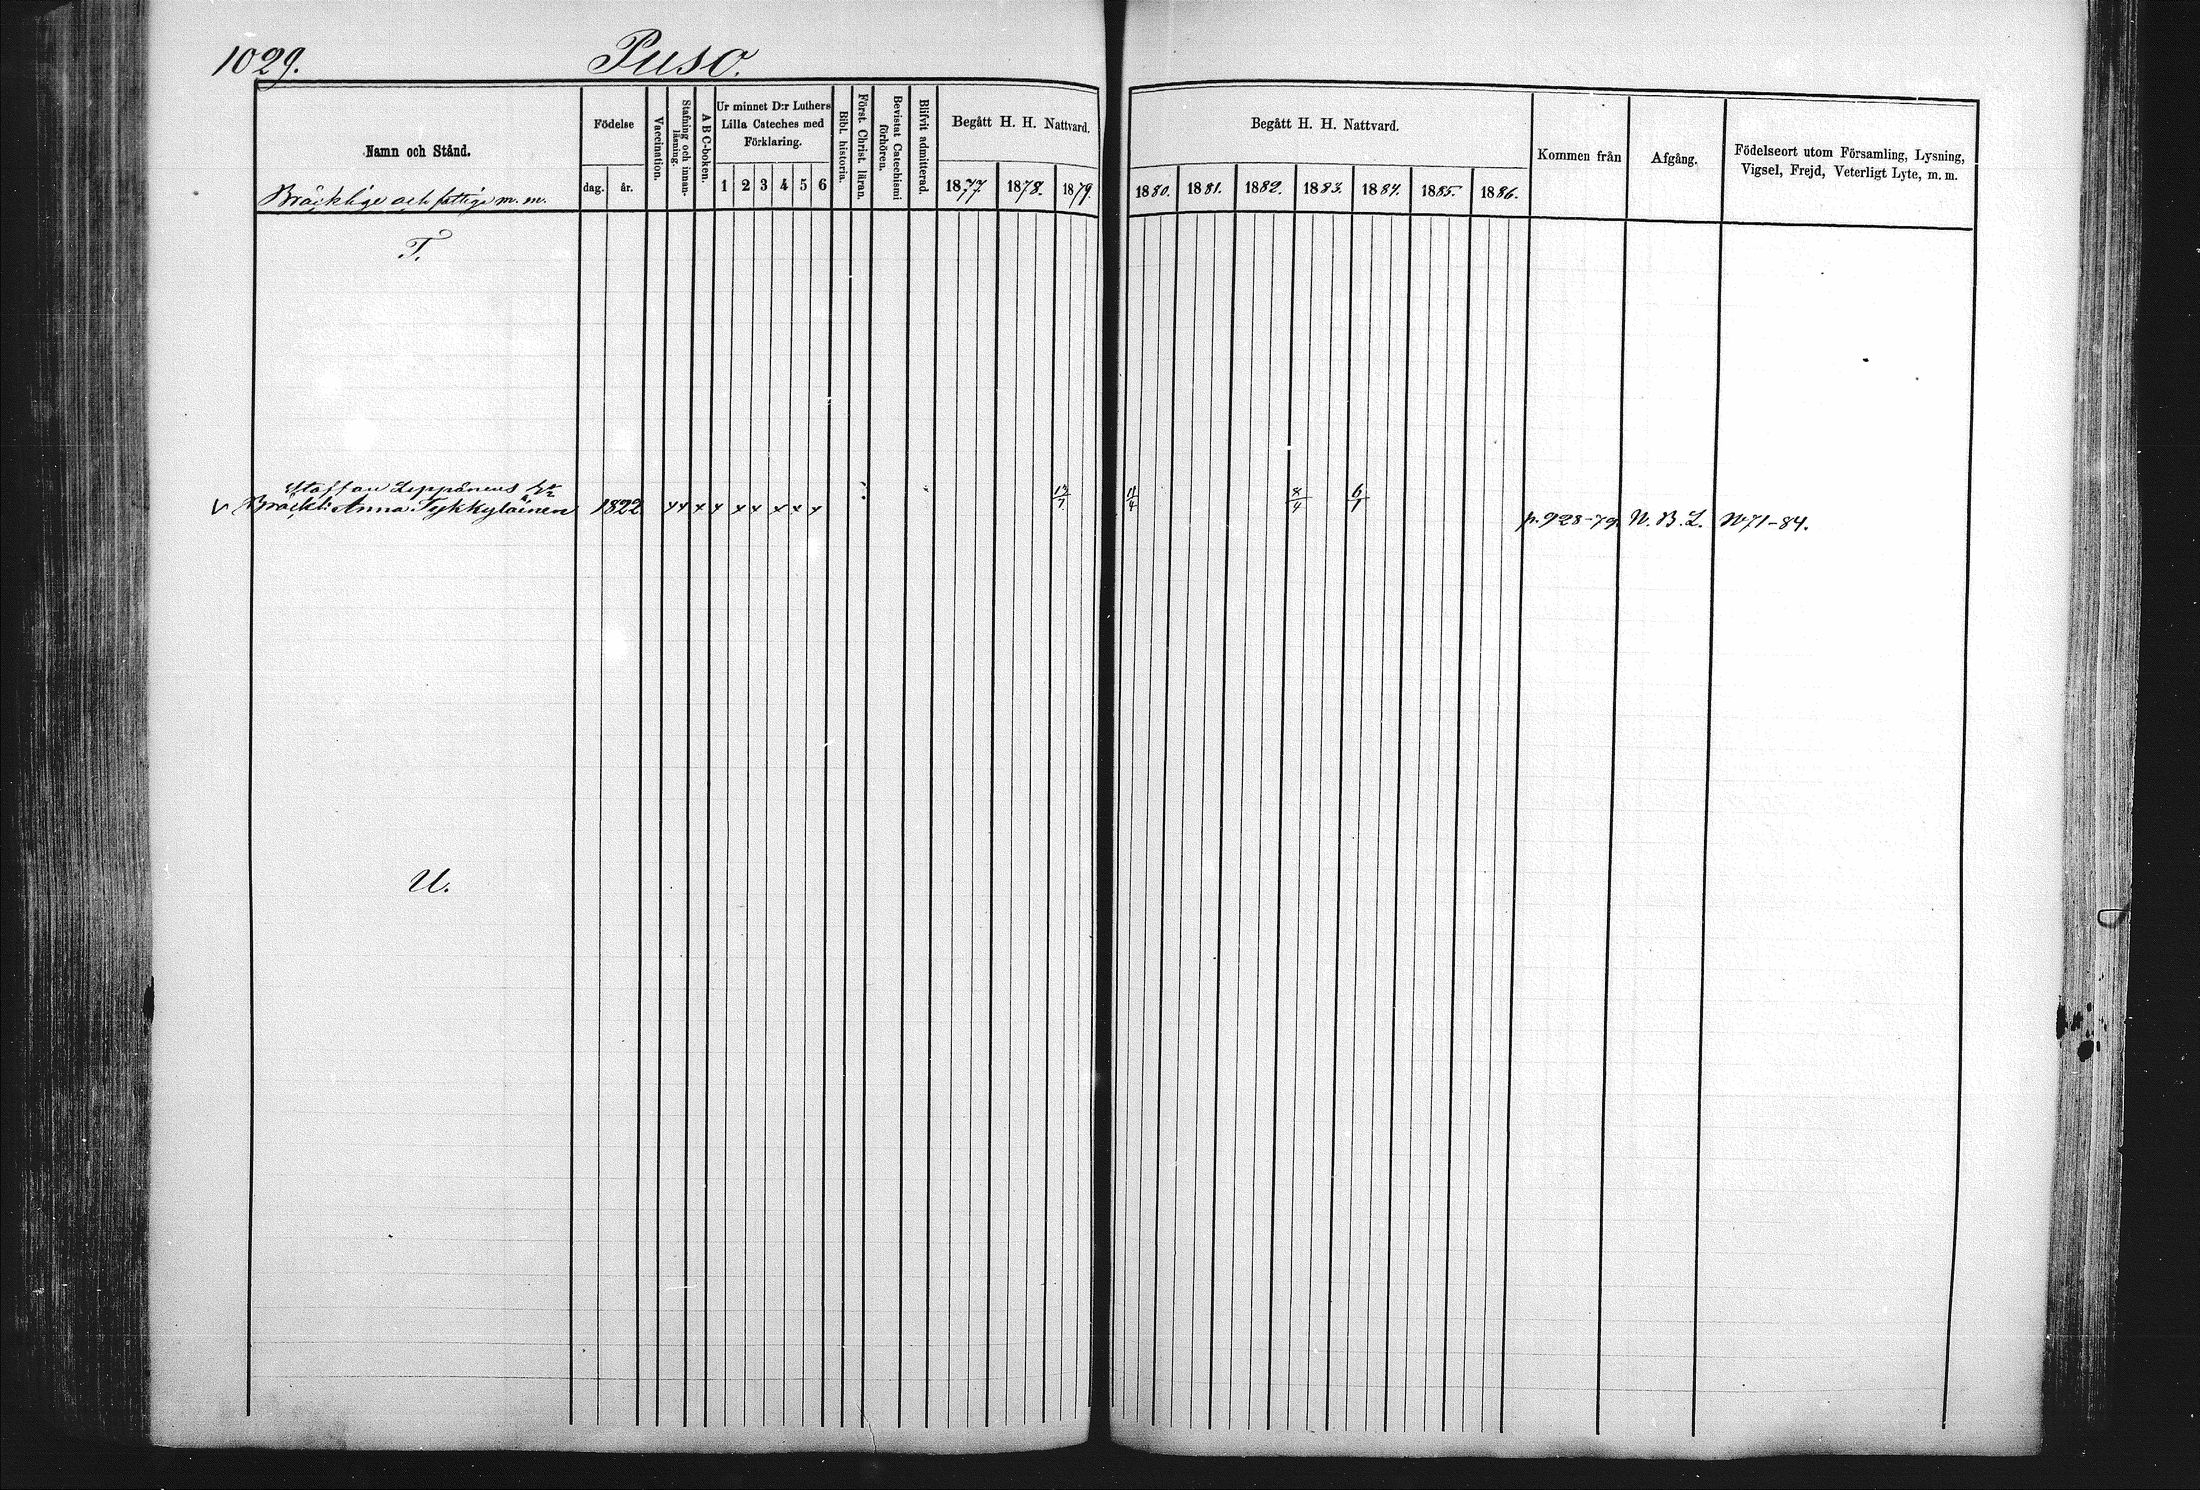 1029. Puso.
Namn och Stånd.
Bräcklige och fattige m. m.
Födelse
dag. år.
Vaccination.
Stafning och innan-
läsning.
A B C-boken.
Ur minnet D:r Luthers
Lilla Cateches med
Förklaring.
1 2 3 4 5 6
Bibl. historia.
Först. Christ. läran.
Bevistat Catechismi
förhören.
Blifvit admitterad.
Begått H. H. Nattvard.
1877. 1878. 1879.
Begått H. H. Nattvard.
1880. 1881. 1882. 1883. 1884. 1885. 1886.
Kommen från
Afgång.
Födelseort utom Församling, Lysning,
Vigsel, Frejd, Veterligt Lyte, m. m.
T.
Staffan Leppänens
Bräckl: Anna Tykkyläinen 1822 x x x x x x x x x 11/4 8/4 6/1 p. 928-79. N. B. L. N 71-84.
U.